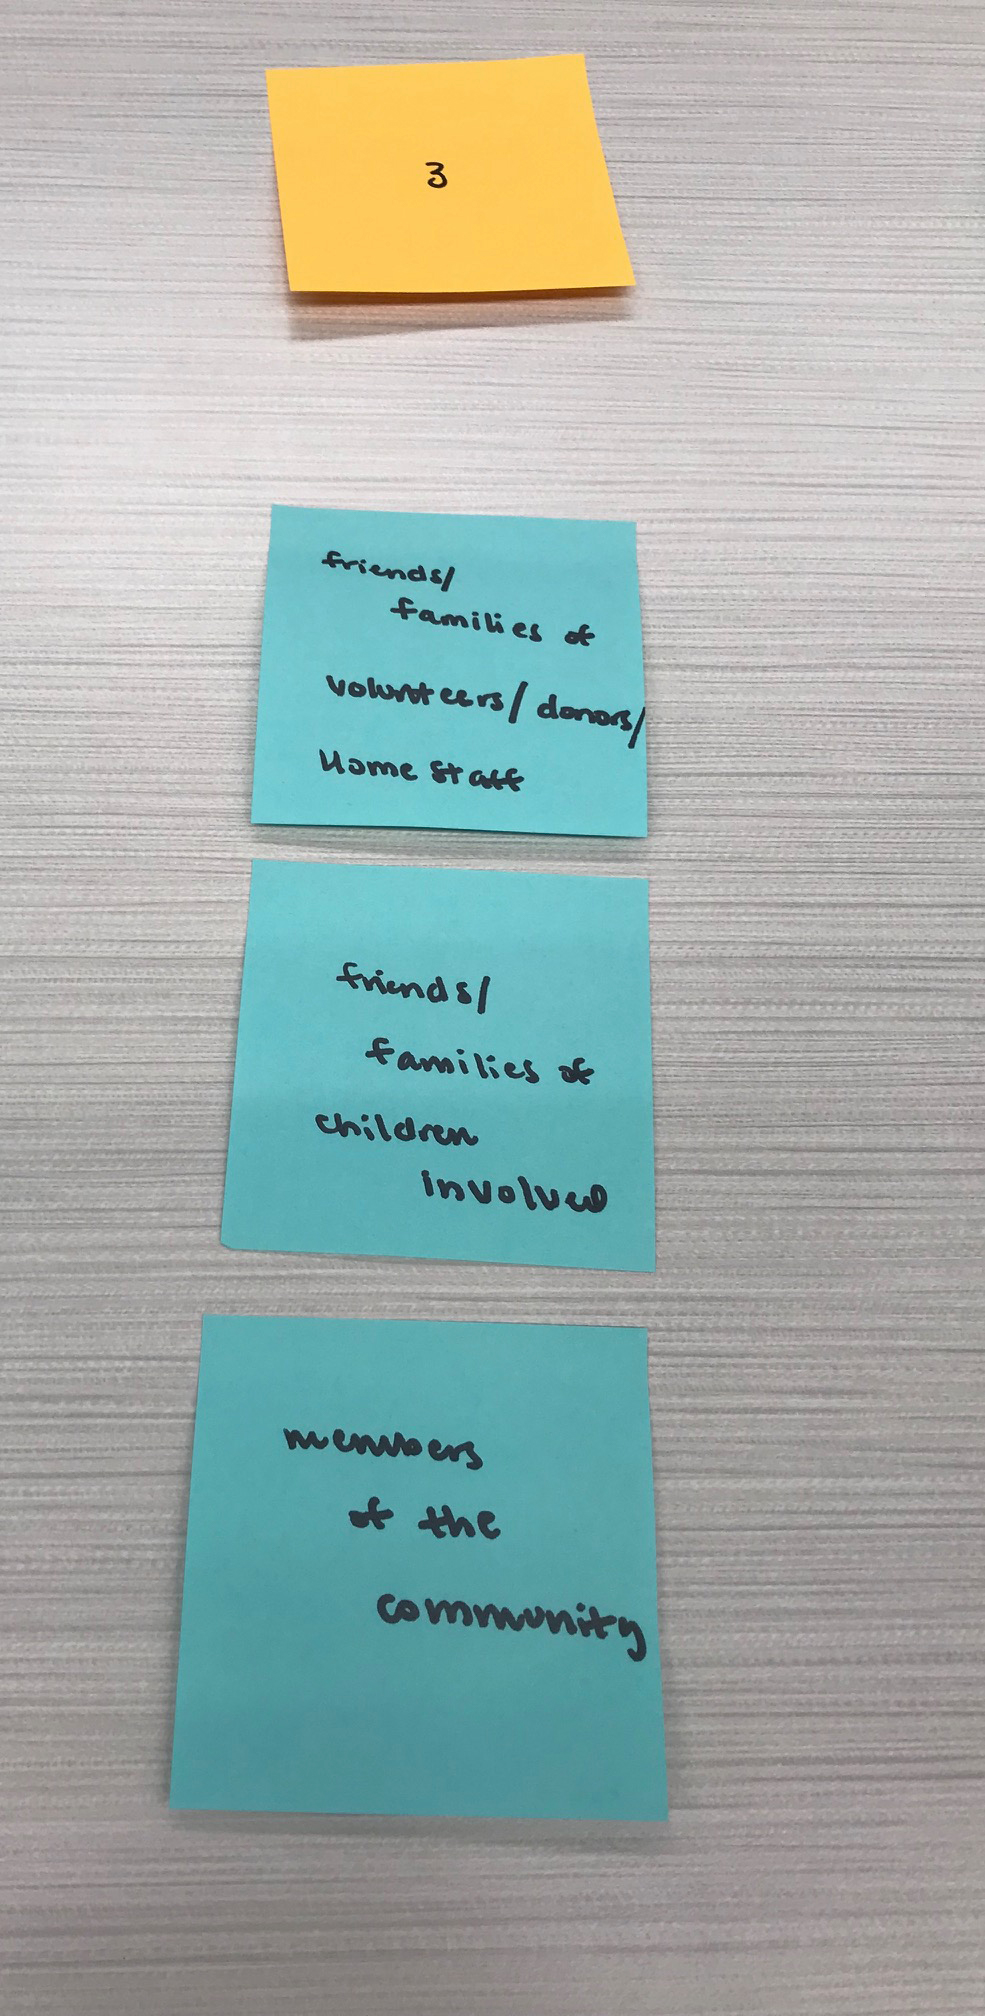 3
friends/
families of
volunteers/donors/
Home Staff
friends/
families of
children
involved
members
of the
community